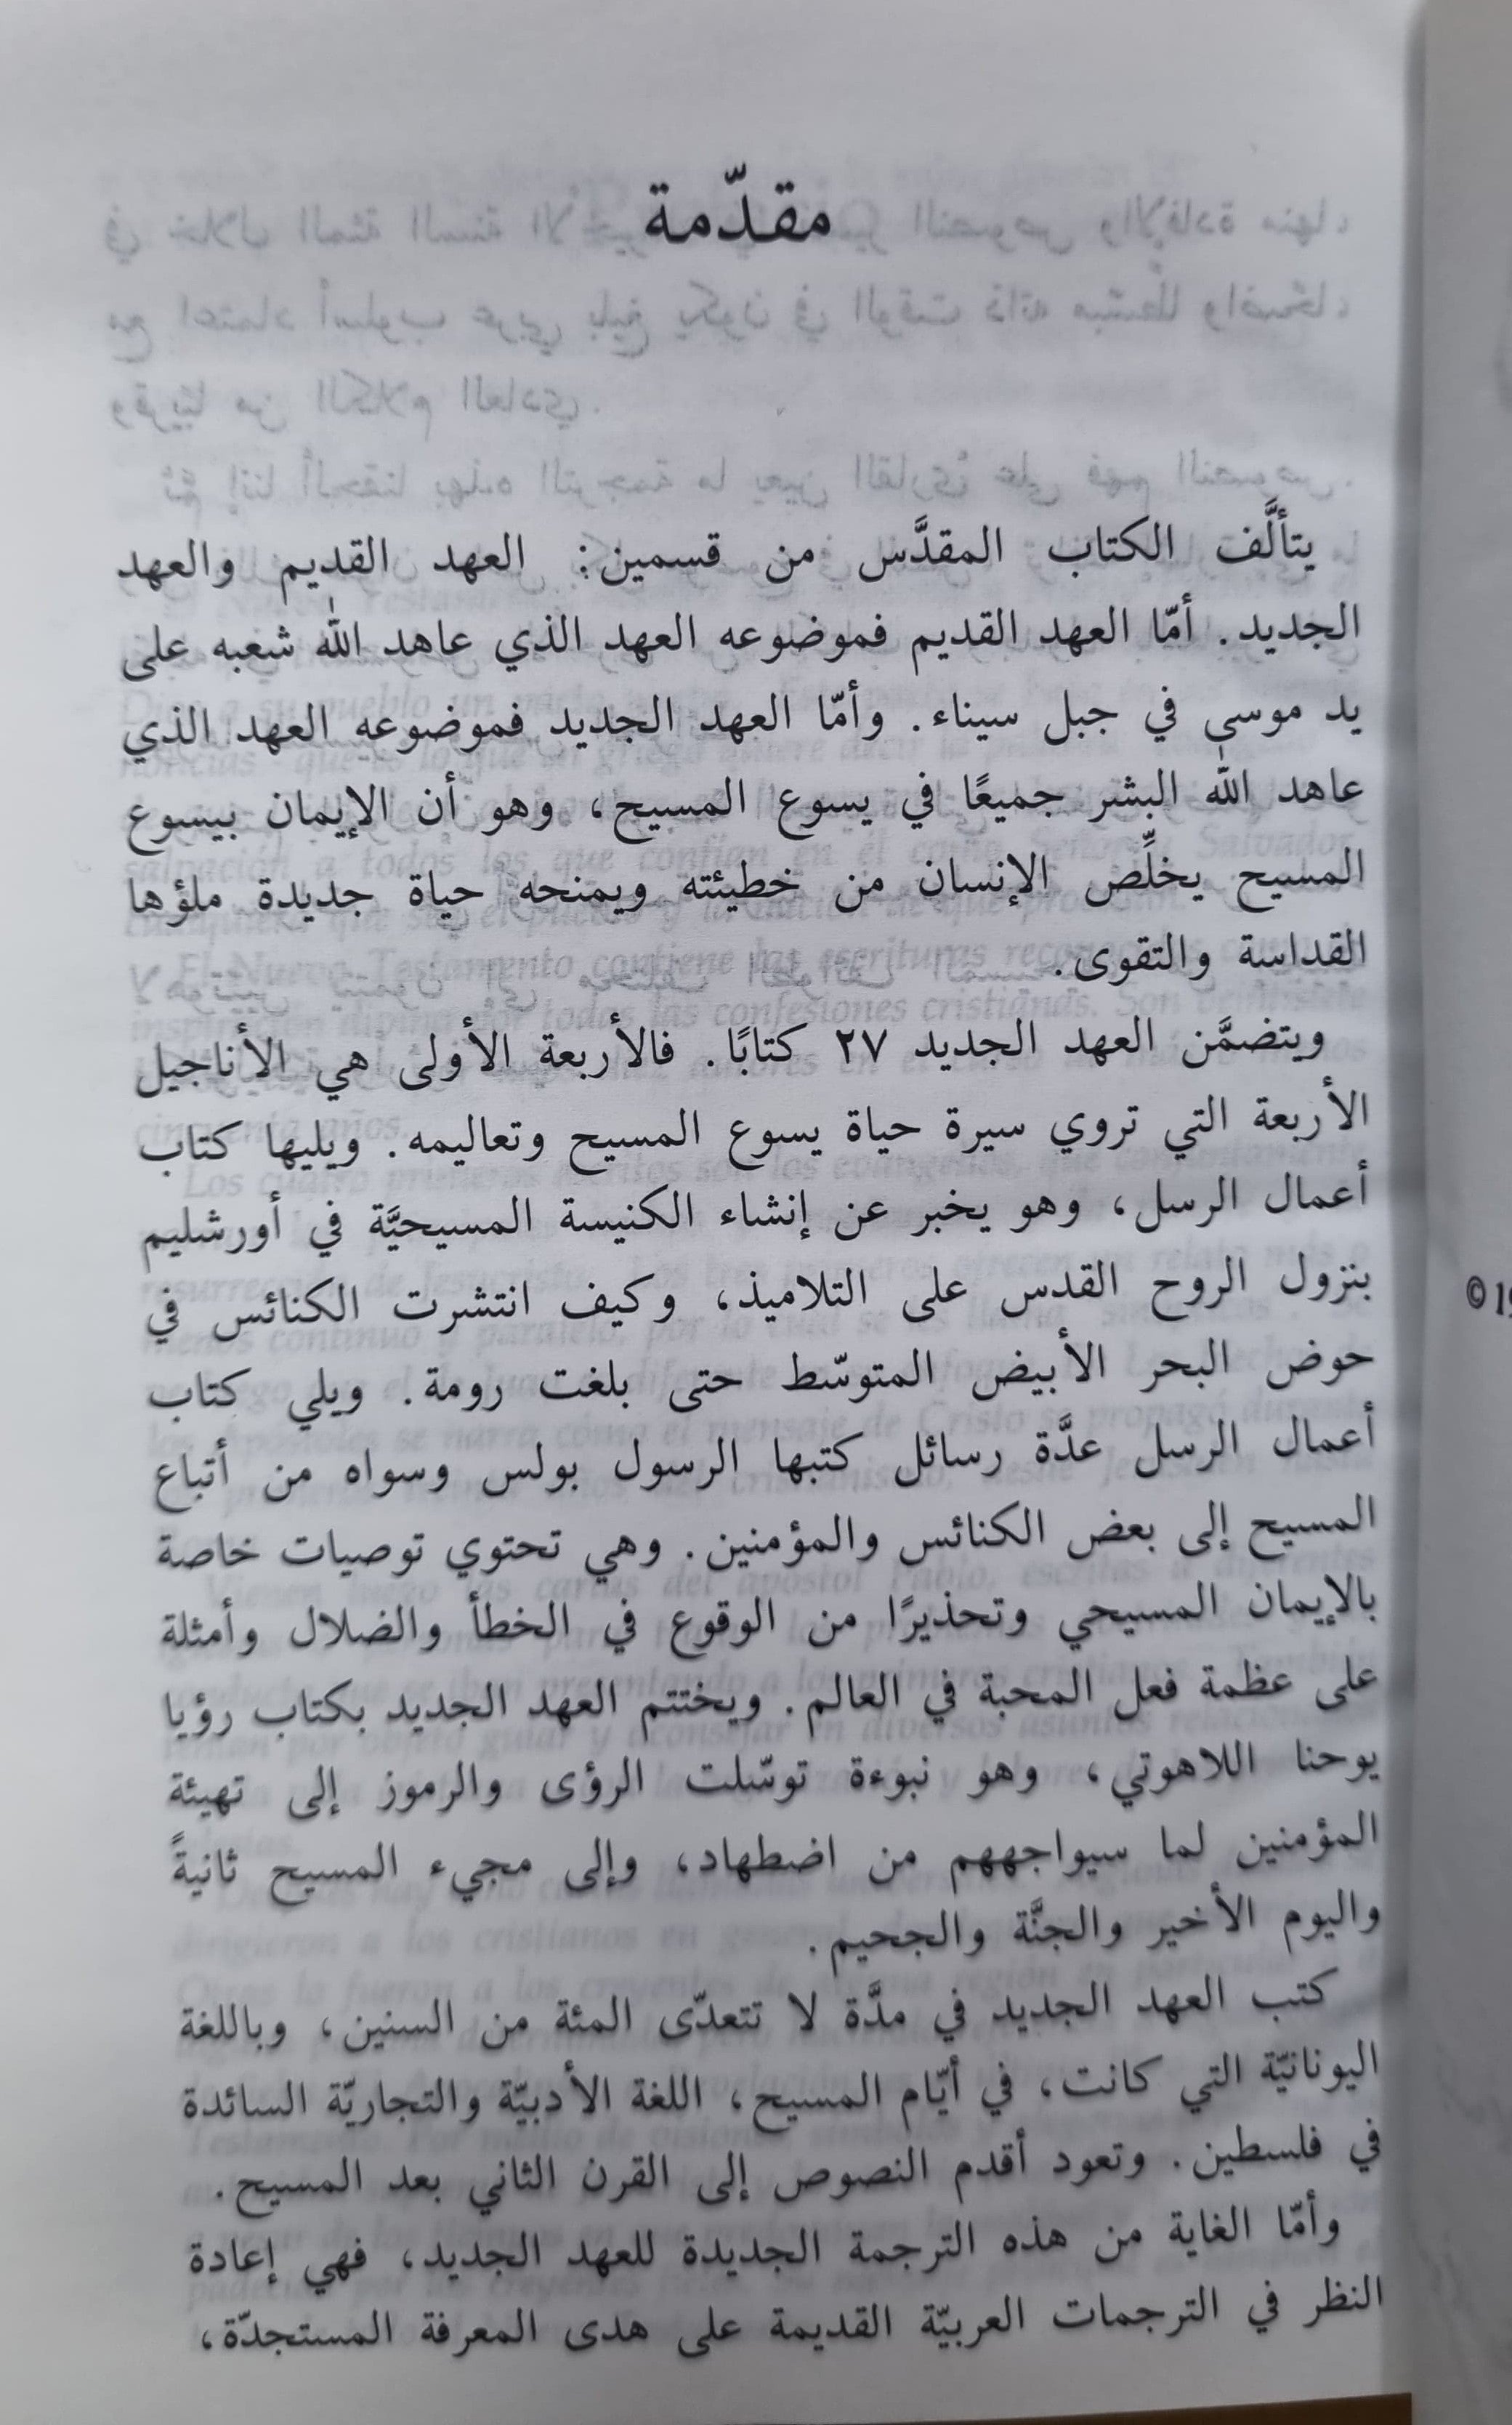 مقدّمة
يتألَّف الكتاب المقدَّس من قسمين: العهد القديم والعهد
الجديد. أمّا العهد القديم فموضوعه العهد الذي عاهد الله شعبه على
يد موسى في جبل سيناء. وأمّا العهد الجديد فموضوعه العهد الذي
عاهد الله البشر جميعًا في يسوع المسيح، وهو أن الإيمان بيسوع
المسيح يخلِّص الإنسان من خطيئته ويمنحه حياة جديدة ملؤها
القداسة والتقوى.
ويتضمَّن العهد الجديد ٢٧ كتابًا. فالأربعة الأولى هي الأناجيل
الأربعة التي تروي سيرة حياة يسوع المسيح وتعاليمه. ويليها كتاب
أعمال الرسل، وهو يخبر عن إنشاء الكنيسة المسيحيَّة في أورشليم
بنزول الروح القدس على التلاميذ، وكيف انتشرت الكنائس في
حوض البحر الأبيض المتوسّط حتى بلغت رومة. ويلي كتاب
أعمال الرسل عدَّة رسائل كتبها الرسول بولس وسواه من أتباع
المسيح إلى بعض الكنائس والمؤمنين. وهي تحتوي توصيات خاصة
بالإيمان المسيحي وتحذيرًا من الوقوع في الخطأ والضلال وأمثلة
على عظمة فعل المحبة في العالم. ويختتم العهد الجديد بكتاب رؤيا
يوحنا اللاهوتي، وهو نبوءة توسّلت الرؤى والرموز إلى تهيئة
المؤمنين لما سيواجههم من اضطهاد، وإلى مجيء المسيح ثانيةً
واليوم الأخير والجنَّة والجحيم.
كتب العهد الجديد في مدَّة لا تتعدّى المئة من السنين، وباللغة
اليونانيّة التي كانت، في أيّام المسيح، اللغة الأدبيّة والتجاريّة السائدة
في فلسطين. وتعود أقدم النصوص إلى القرن الثاني بعد المسيح.
وأمّا الغاية من هذه الترجمة الجديدة للعهد الجديد، فهي إعادة
النظر في الترجمات العربيّة القديمة على هدى المعرفة المستجدّة،